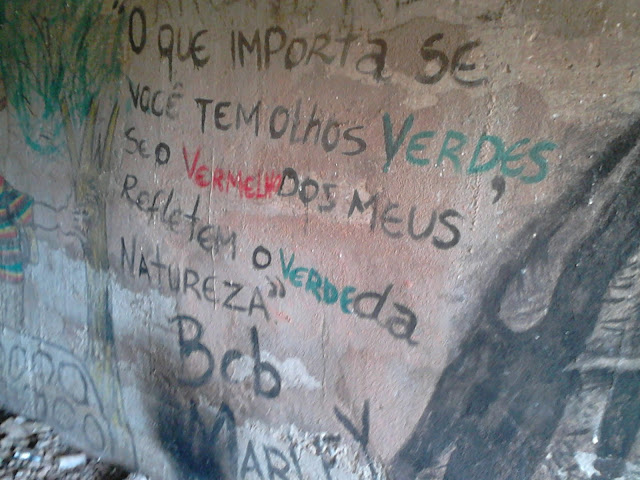 "O QUE IMPORTA SE
VOCÊ TEM OLHOS VERDES,
SE O VERMELHO DOS MEUS
REFLETEM O VERDE da
NATUREZA"
Bob
MARLEY